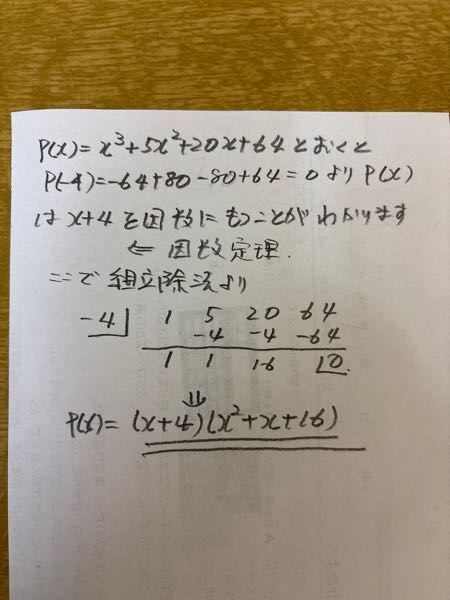 P(x)=x³+5x²+20x+64とおくと
P(-4)=-64+80-80+64=0よりP(x)
はx+4を因数にもつことがわかります
⇐ 因数定理.
ここで組立除法より
-4 1 5 20 64
-4 -4 -64
1 1 16 0
⇓
P(x)=(x+4)(x²+x+16)